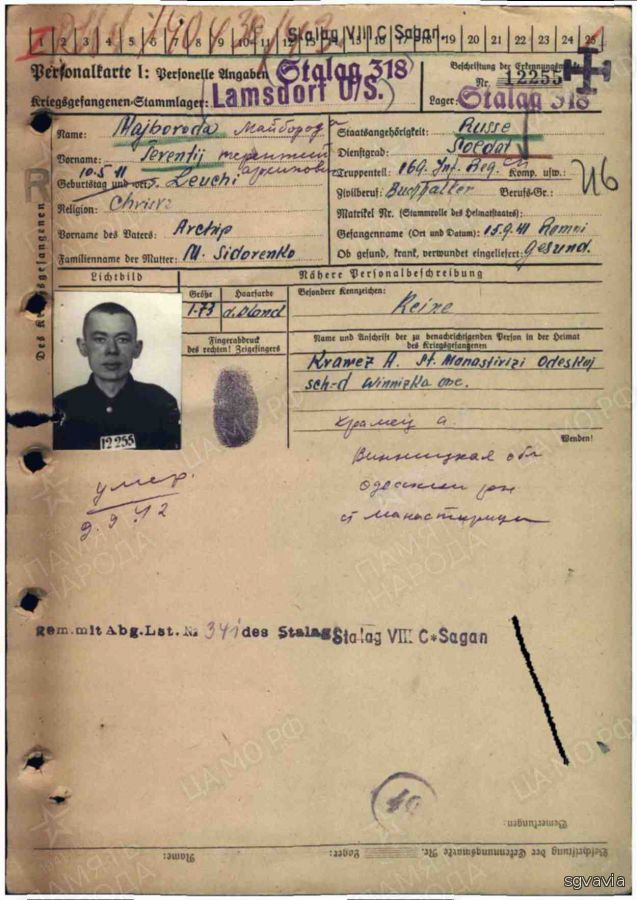 Stalag VIII C Sagan.
1 2 3 4 5 6 7 8 9 10 11 12 13 14 15 16 17 18 19 20 21 22 23 24 25
Personalkarte I: Personelle Angaben
Stalag 318
Beschriftung der Erkennungsmarke
Nr. 12255
Kriegsgefangenen-Stammlager:
Lamsdorf O/S.
Lager: Stalag 318
Des Kriegsgefangenen
Name: Majboroda Майборода
Vorname: Terentij терентий
архипович
Geburtstag und -ort: 10.5.11 Leuchi
Religion:
Vorname des Vaters: Archip
Familienname der Mutter: M. Sidorenko
Staatsangehörigkeit: Russe
Dienstgrad: Soldat
Truppenteil: 169. Inf. Reg. Komp. usw.:
Zivilberuf: Buchhalter Berufs-Gr.:
Matrikel Nr. (Stammrolle des Heimatstaates):
Gefangenname (Ort und Datum): 15.9.41 Romni
Ob gesund, krank, verwundet eingeliefert: gesund.
Lichtbild
Nähere Personalbeschreibung
Größe
Haarfarbe
1.73
d. blond
Fingerabdruck
des rechten! Zeigefingers
Besondere Kennzeichen:
Keine
Name und Anschrift der zu benachrichtigenden Person in der Heimat
des Kriegsgefangenen
Kramez A. St. Monastirizi Odeskoj
Winnizka
Wenden!
12255
Крамец а.
Винницкая обл
Одесский рон
ст манастирищи
умер.
9.9.42
gem.mit Abg.Lst.№ 341 des Stalag Stalag VIII C*Sagan
40
Bemerkungen:
Name:
Lager:
Beschriftung der Erkennungsmarke Nr.
ЦАМО РФ
ПАМЯТЬ
НАРОДА
sgvavia